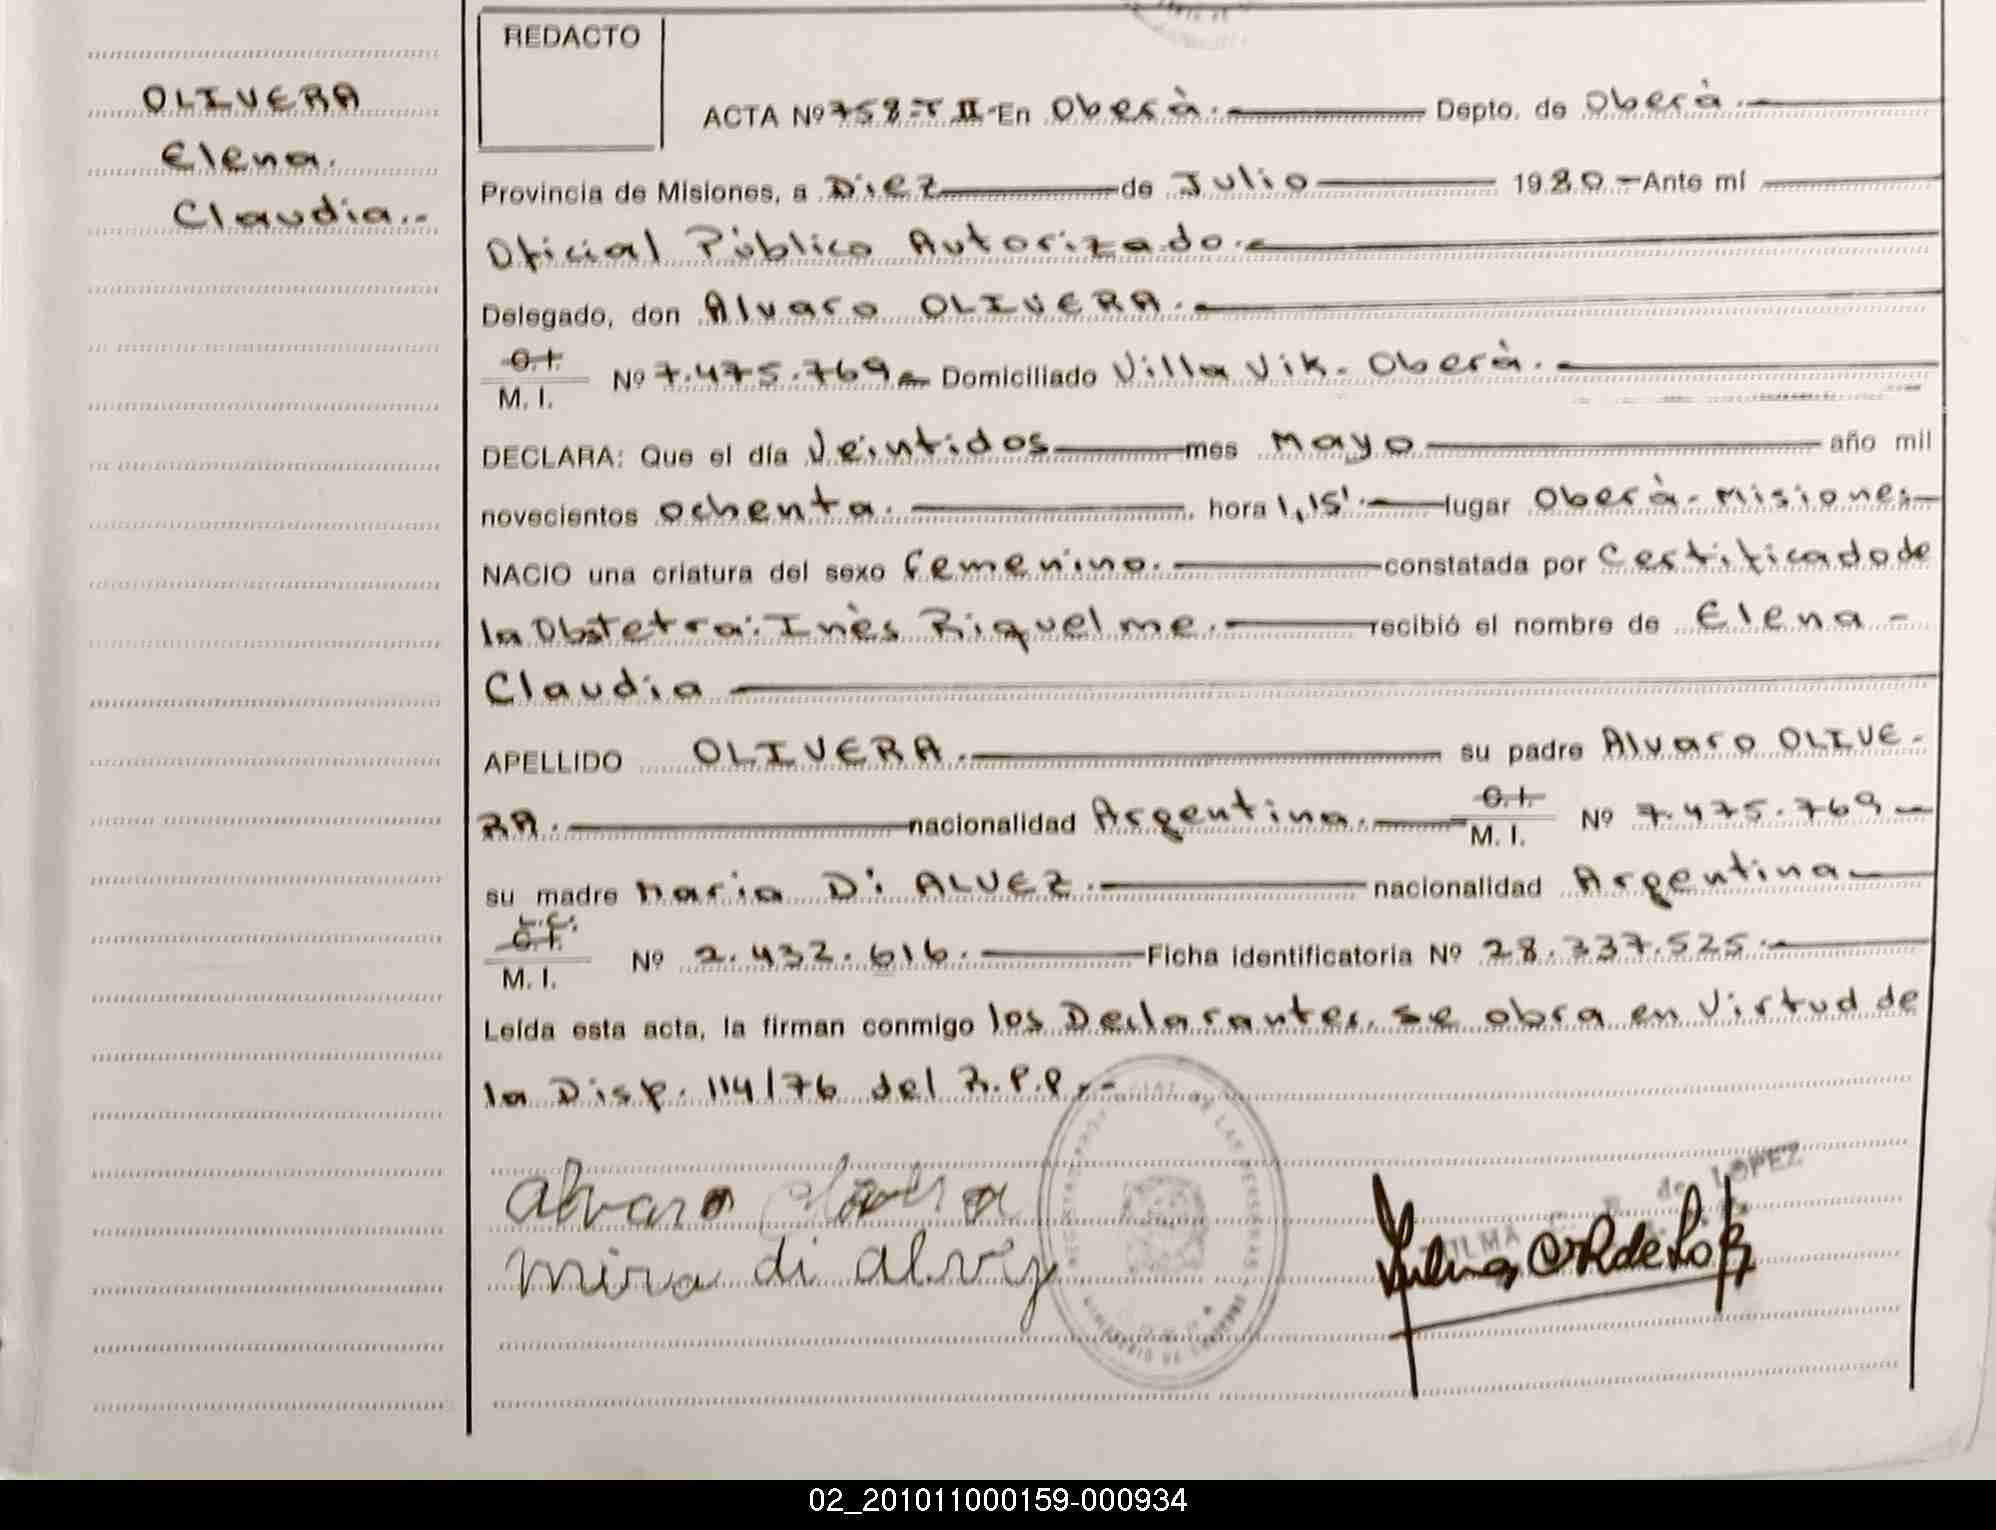 OLIVERA
Elena.
Claudia.-
REDACTO
ACTA Nº 758-T II- En Oberà. Depto. de Oberà.
Provincia de Misiones, a Diez de Julio 1980.- Ante mí
Oficial Público Autorizado.
Delegado, don Alvaro OLIVERA.
C.I.
M. I. Nº 7.475.769 Domiciliado Villa Vik. Oberà.
DECLARA: Que el día Veintidos mes Mayo año mil
novecientos ochenta. hora 1,15'. lugar Oberà-Misiones-
NACIO una criatura del sexo femenino. constatada por Certificado de
la Obstetra: Inès Riquelme. recibió el nombre de Elena -
Claudia
APELLIDO OLIVERA. su padre Alvaro OLIVE-
RA. nacionalidad Argentina. C.I. M. I. Nº 7.475.769
su madre Maria Di ALVEZ. nacionalidad Argentina
L.C.
C.I.
M. I. Nº 2.432.616. Ficha identificatoria Nº 28.337.525.
Leída esta acta, la firman conmigo los Declarantes, se obra en Virtud de
la Disp. 114/76 del R.P.P.-
Alvaro Olivera
mira di alvez
de LOPEZ
02_201011000159-000934